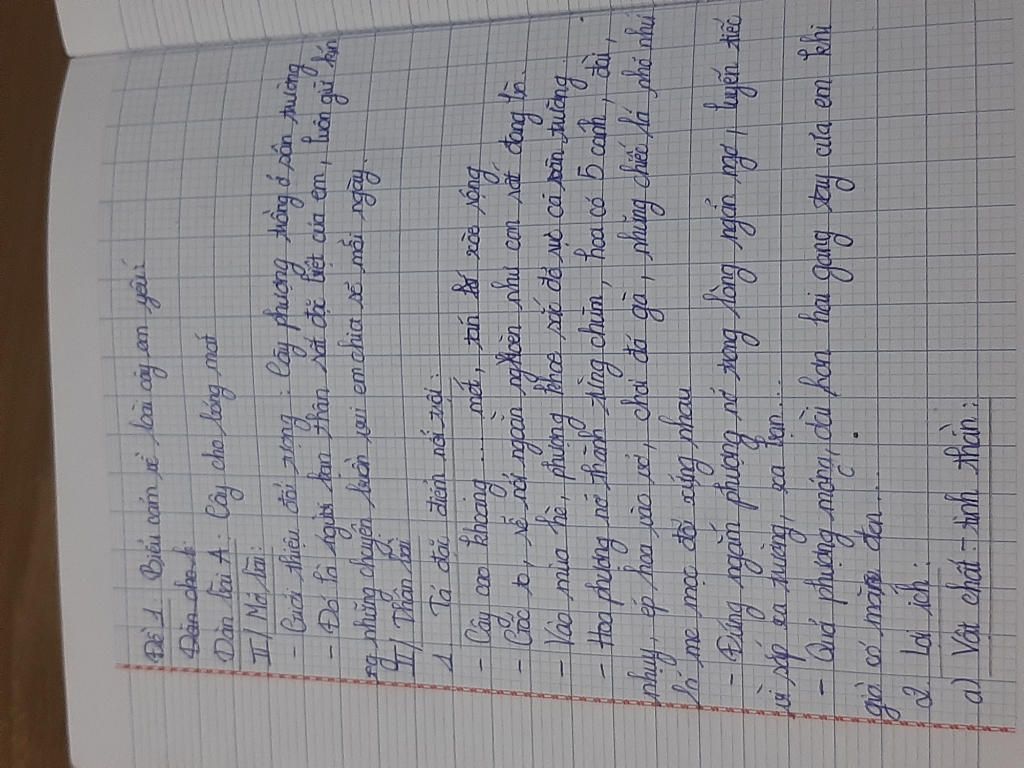 Đề 1: Biểu cảm về loài cây em yêu
Dàn bài A: Cây cho bóng mát
II/ Mở bài:
- Giới thiệu đối tượng: Cây phượng trồng ở sân trường
- Đó là người bạn thân rất đặc biệt của em, luôn giữ kín
những chuyện buồn vui em chia sẻ mỗi ngày.
II/ Thân bài
1 Tả đặc điểm nổi bật:
- Cây cao khoảng ..... mét, tán xòe rộng
- Gốc to, rễ nổi ngoằn nghoèn như con rắn đang bò.
- Vào mùa hè, phượng khoe sắc đỏ rực cả sân trường.
- Hoa phượng nở thành từng chùm, hoa có 5 cánh, đài,
nhụy, ép hoa vào vở, chơi đá gà, những chiếc lá nhỏ như
lá me mọc đối xứng nhau
- Đứng ngắm phượng nở trong lòng ngẩn ngơ, luyến tiếc
vì sắp xa trường, xa bạn...
- Quả phượng mỏng, dài hơn hai gang tay của em khi
già có màu đen...
2 Lợi ích:
a) Vật chất - tinh thần: